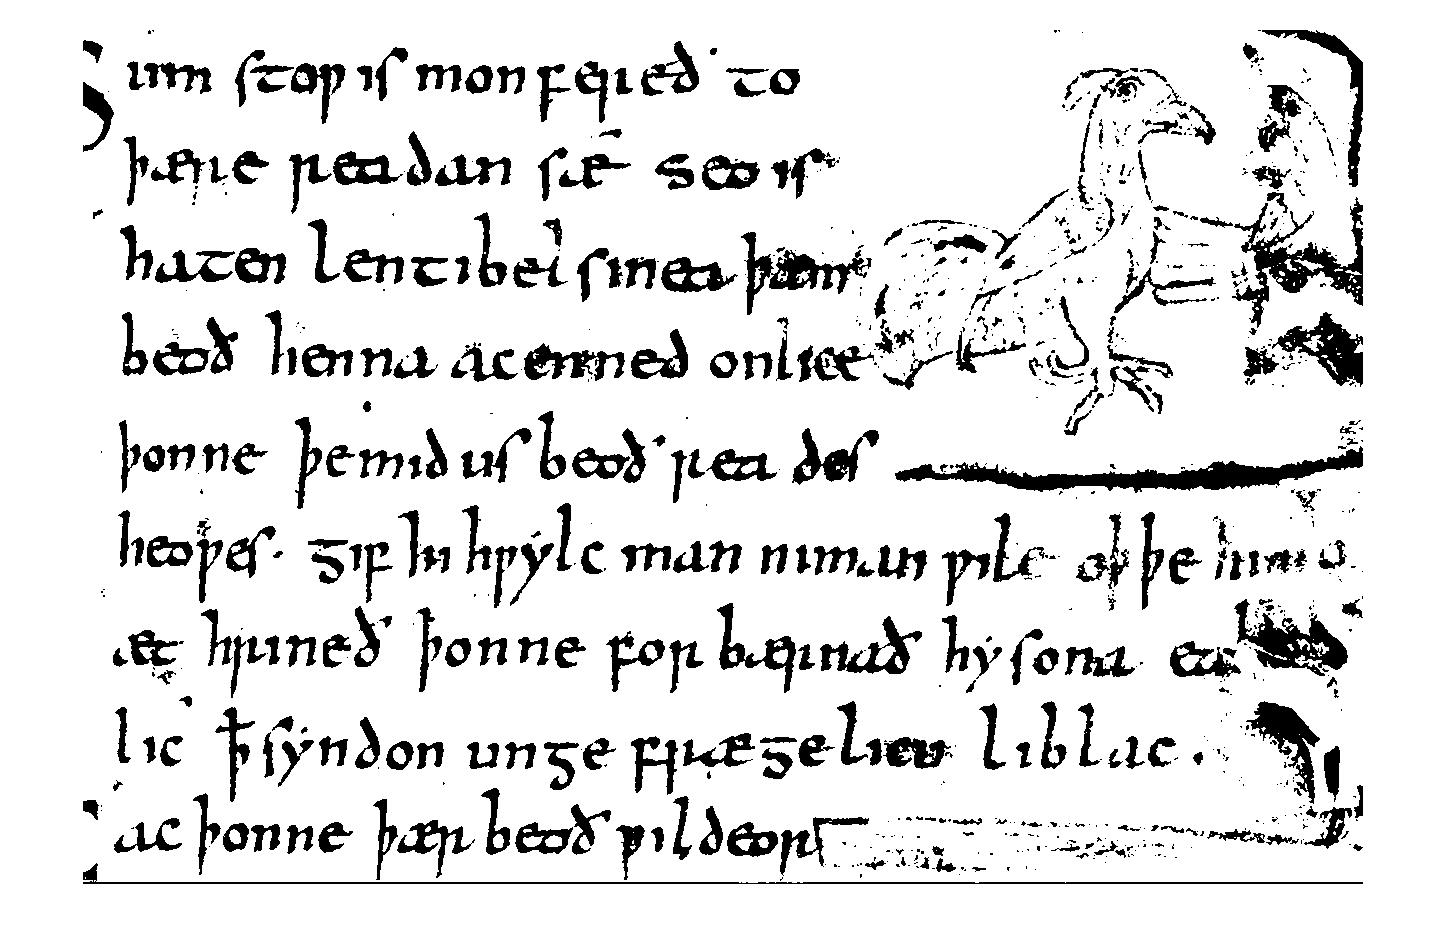 Sum stoƿ is mon ferieð to
þære readan sǣ seo is
haten lentibelsinea þam
beoð henna acenned onlice
þonne þe mid us beoð reades
heoƿes. gif hi hƿylc man niman ƿile oþþe him o
æt hrineð þonne forbærnað hy sona eal
lic ꝥ syndon ungefrægelicu liblac.
ac þonne þær beoð ƿildeor